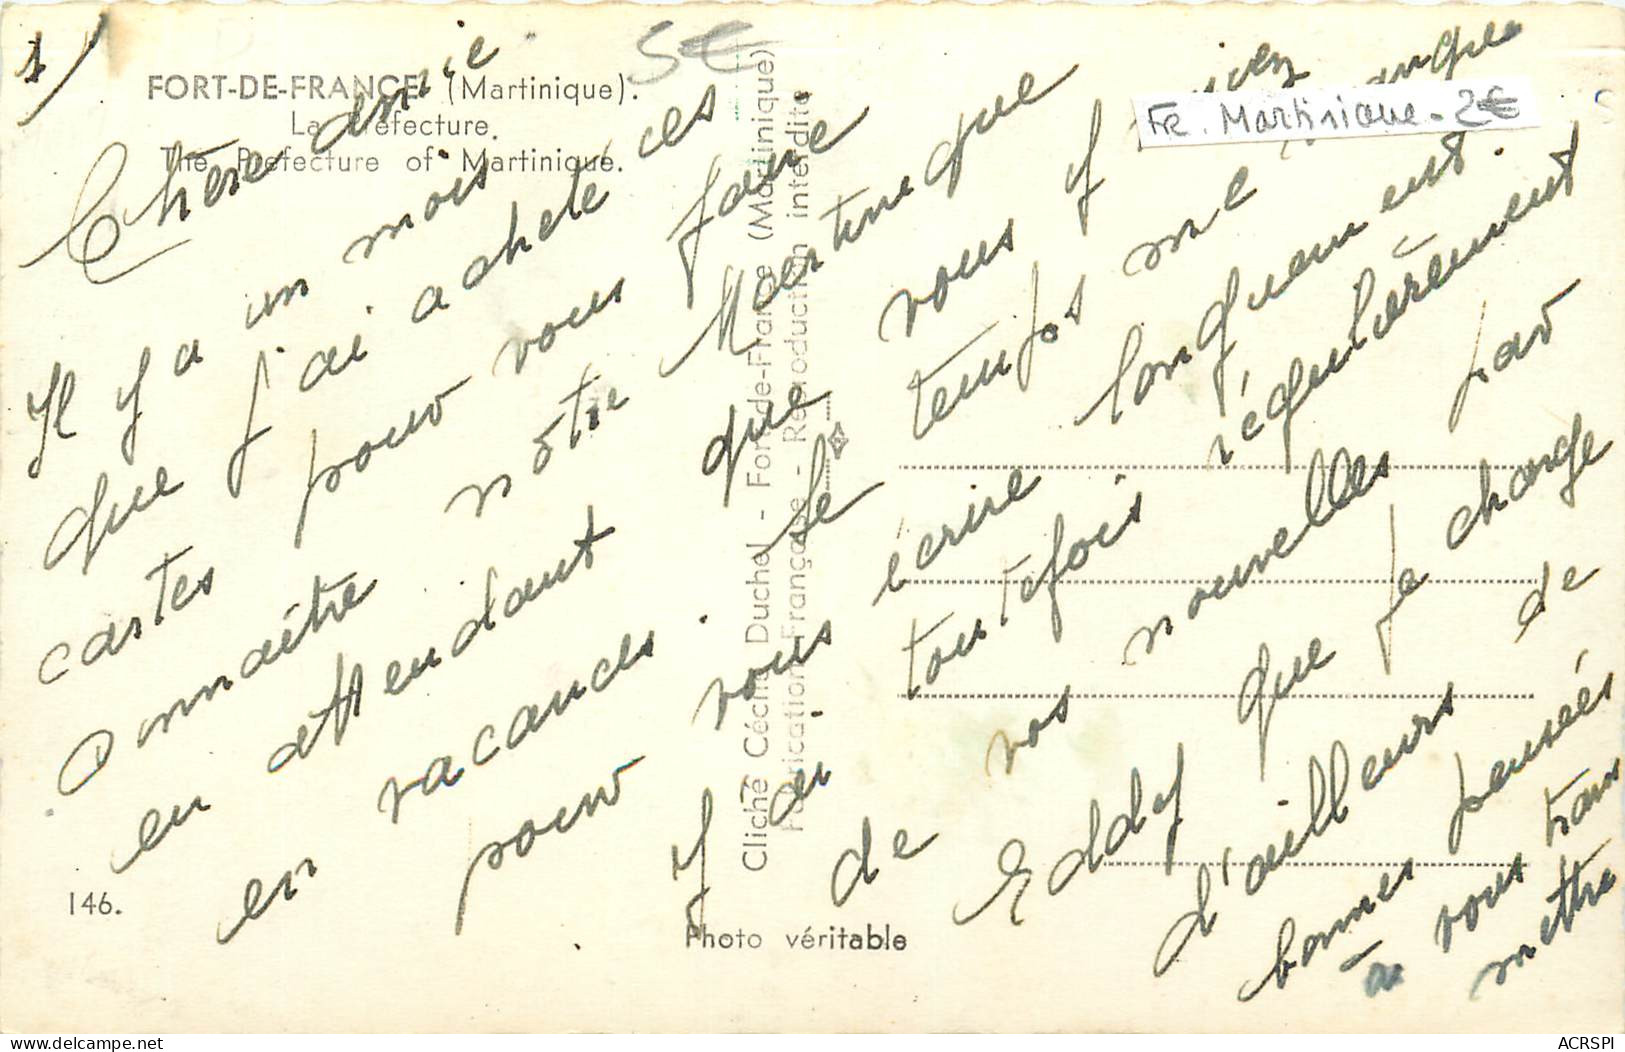 1/
5€
FORT-DE-FRANCE (Martinique).
La Préfecture.
The Prefecture of Martinique.
Fr. Martinique - 2€
Chère amie
Il y a un mois
que j'ai acheté ces
cartes pour vous faire
connaître nôtre Martinique
en attendant que vous y
en vacances. Le temps me manque
pour vous écrire longuement.
J'ai toutefois régulièrement
de vos nouvelles par
Eddy que je charge
d'ailleurs de
bonnes pensées
à vous trans
mettre
Cliché Cécile Duchel - Fort-de-France (Martinique)
Fabrication Française - Reproduction interdite
146.
Photo véritable
ACRSPI